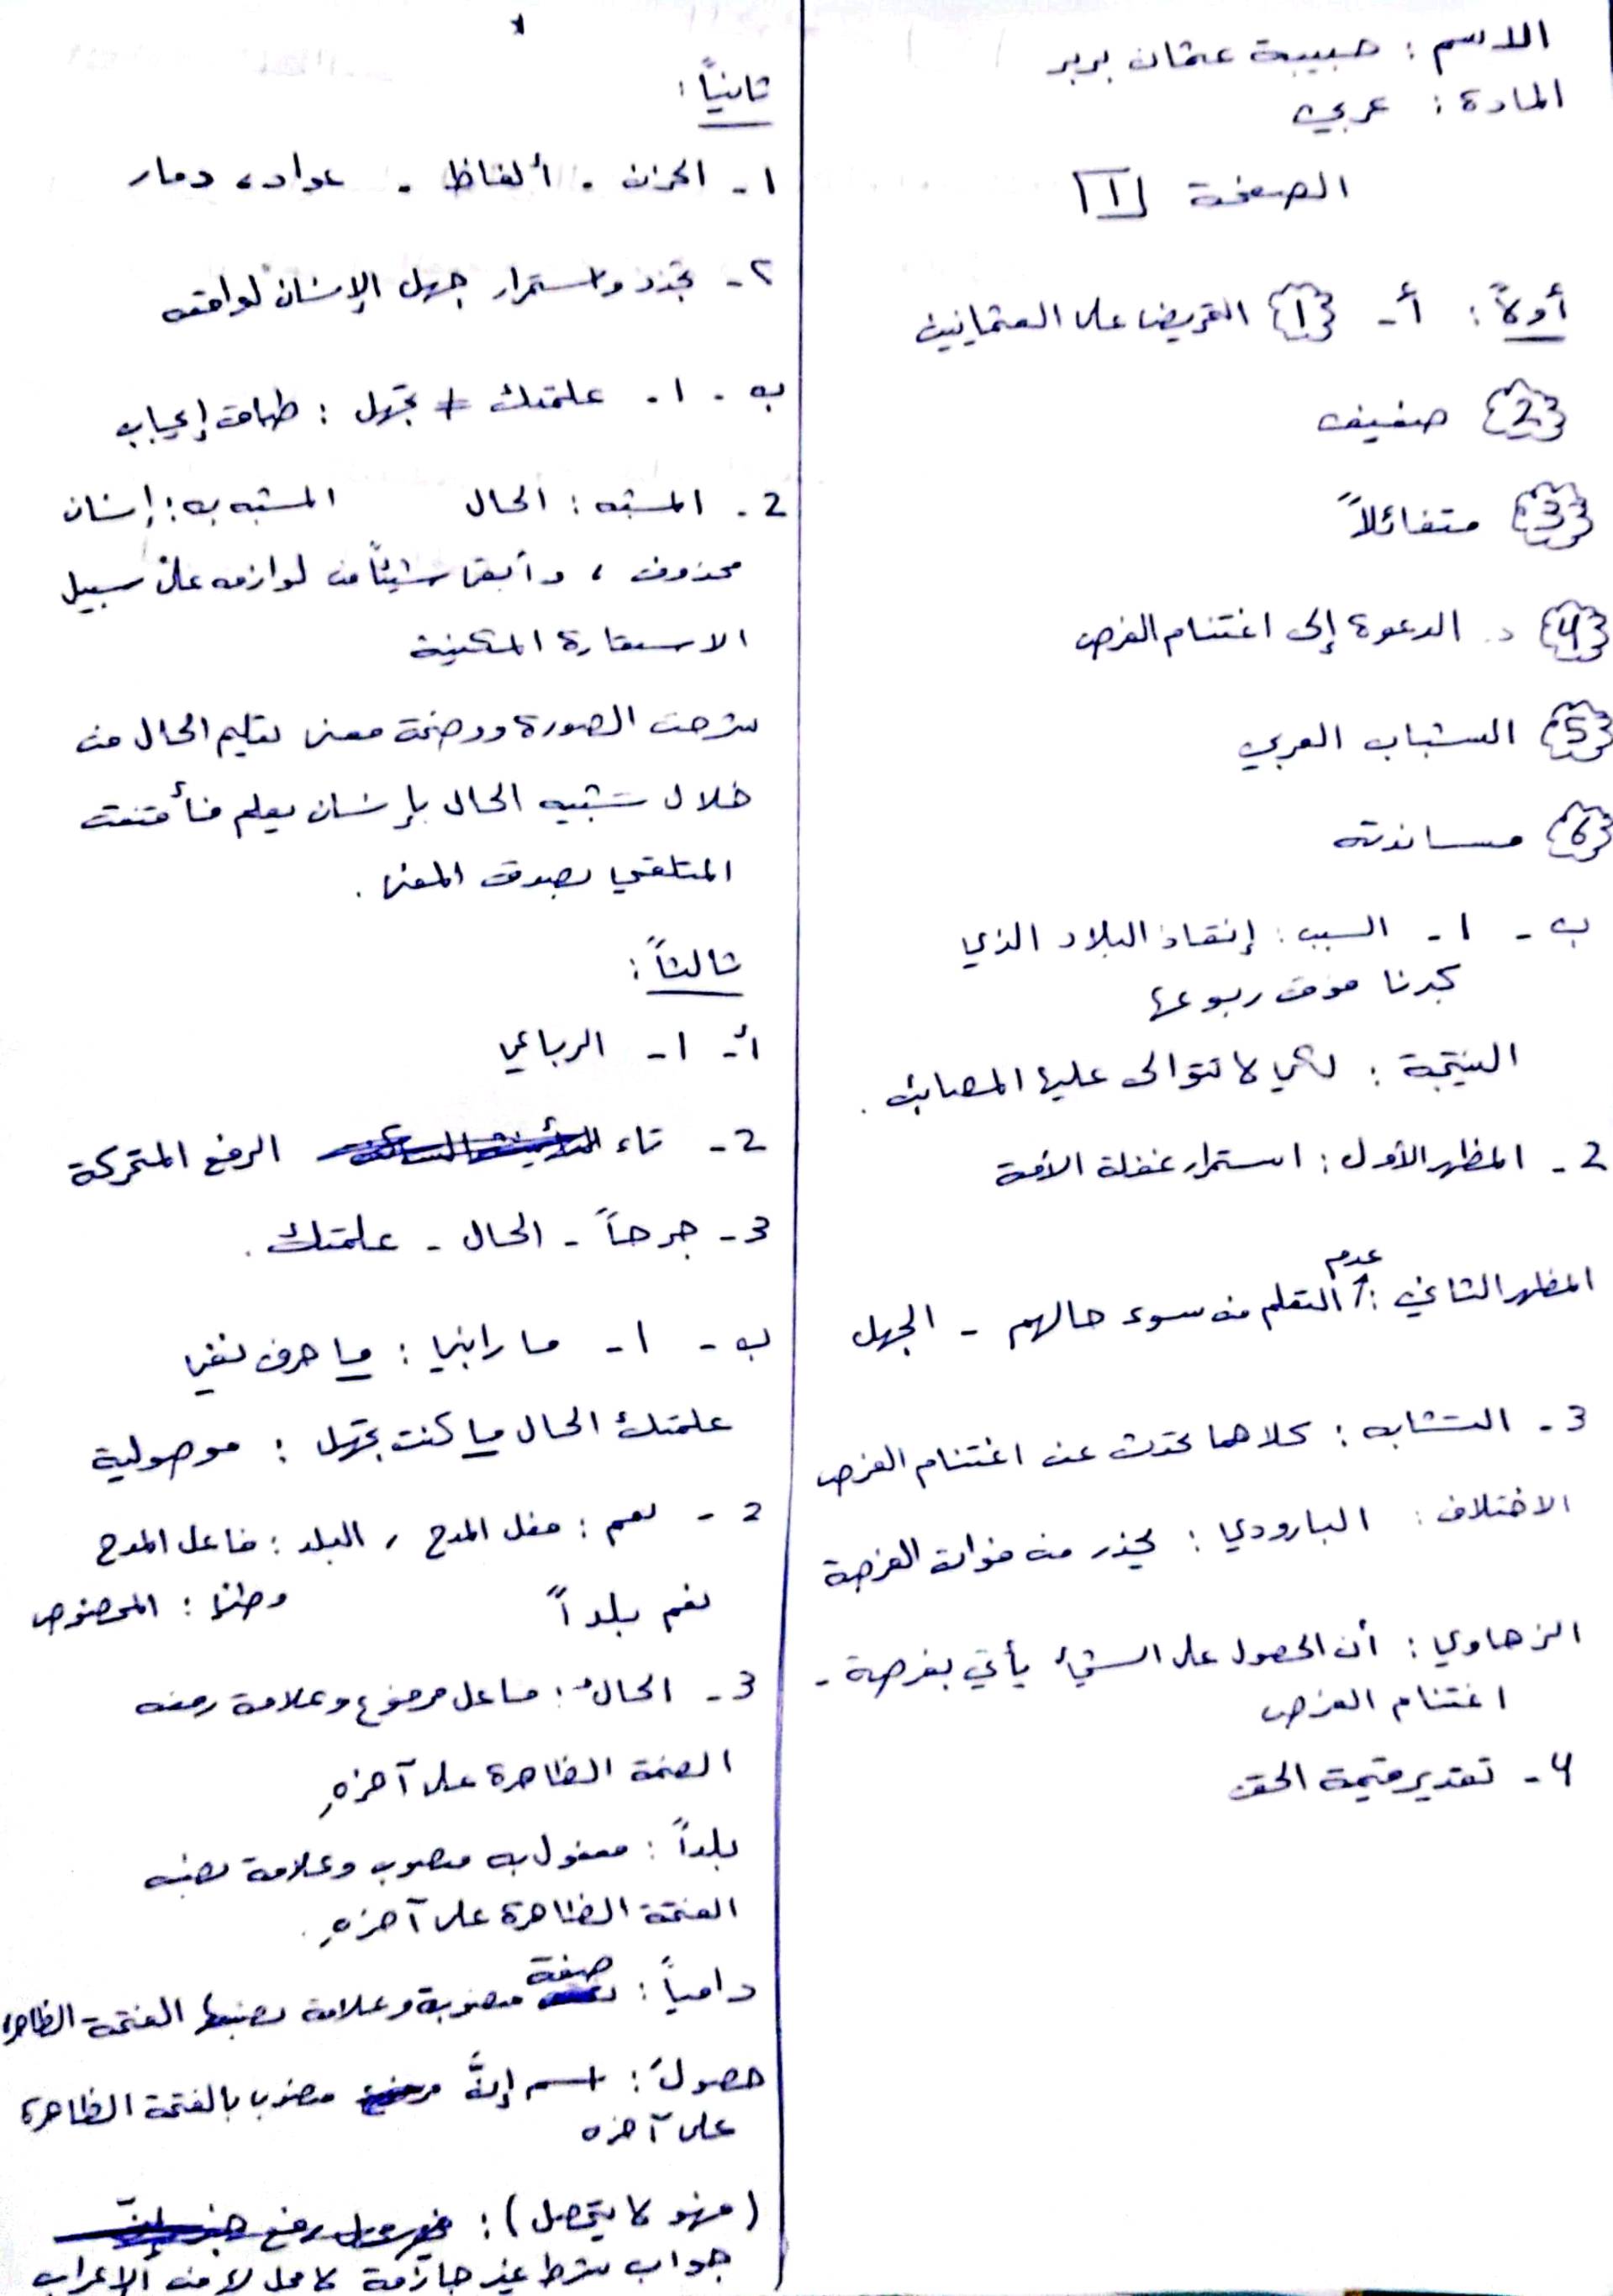 الاسم : حبيبة عثمان بربر
المادة : عربي
الصفحة 1
أولاً : أ - 1 التحريض على العثمانيين
2 ضفيف
3 متفائلاً
4 د. الدعوة إلى اغتنام الفرص
5 الشباب العربي
6 مساندته
ب - 1 - السبب : إنقاذ البلاد الذي
بحدنا فوق ربوعها
النتيجة : لكي لا تتوالى عليها المصائب .
2 - المظهر الأول : استمرار غفلة الأمة
المظهر الثاني : عدم التعلم من سوء حالهم - الجهل
3 - التشابه : كلاهما تحدث عن اغتنام الفرص
الاختلاف : البارودي : يحذر من فوات الفرصة
الزهاوي : أن الحصول على الشيء يأتي بفرصة -
اغتنام الفرص
4 - تقدير قيمة الحق
ثانياً :
1 - الحزن . ألفاظ . عواد ، دمار
2 - تجدد واستمرار جهل الإنسان لواقعه
ب . 1 . علمتك ≠ تجهل : طباق إيجاب
2 . المشبه : الحال المشبه به : إنسان
محذوف ، وأبقى شيئاً من لوازمه على سبيل
الاستعارة المكنية
شرحت الصورة ووضحت معنى تعليم الحال من
خلال تشبيه الحال بإنسان يعلم فأقنعت
المتلقي بصدق المعنى .
ثالثاً :
أ - 1 - الرباعي
2 - تاء الرفع المتحركة
3 - جرحاً - الحال - علمتك .
ب - 1 - ما رابني : ما حرف نفي
علمتك الحال ما كنت تجهل : موصولية
2 - نعم : فعل المدح , البلد : فاعل المدح
نعم بلداً وطننا : المخصوص
3 - الحالُ : فاعل مرفوع وعلامة رفعه
الضمة الظاهرة على آخرهِ
بلداً : مفعول به منصوب وعلامة نصبه
الفتحة الظاهرة على آخرهِ .
دامياً : صفة منصوبة وعلامة نصبها الفتحة الظاهرة
حصولَ : اسم إنَّ منصوب بالفتحة الظاهرة
على آخره
(فهو لا يتحصل) :
جواب شرط غير جازمة لا محل لا من الإعراب